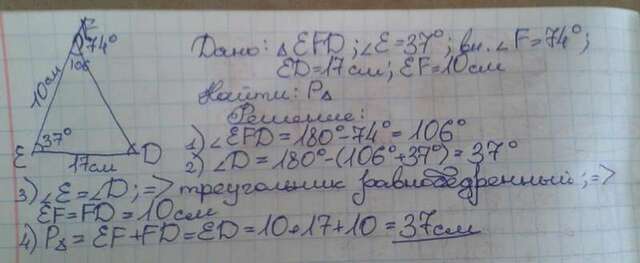 F
74°
106
10см
37°
E
17см
D
Дано: △EFD; ∠E=37°; вн. ∠F=74°;
ED=17см; EF=10см
Найти: P△
Решение:
1) ∠EFD=180°-74°=106°
2) ∠D=180°-(106°+37°)=37°
3) ∠E=∠D; => треугольник равнобедренный; =>
EF=FD=10см
4) P△=EF+FD=ED=10+17+10=37см